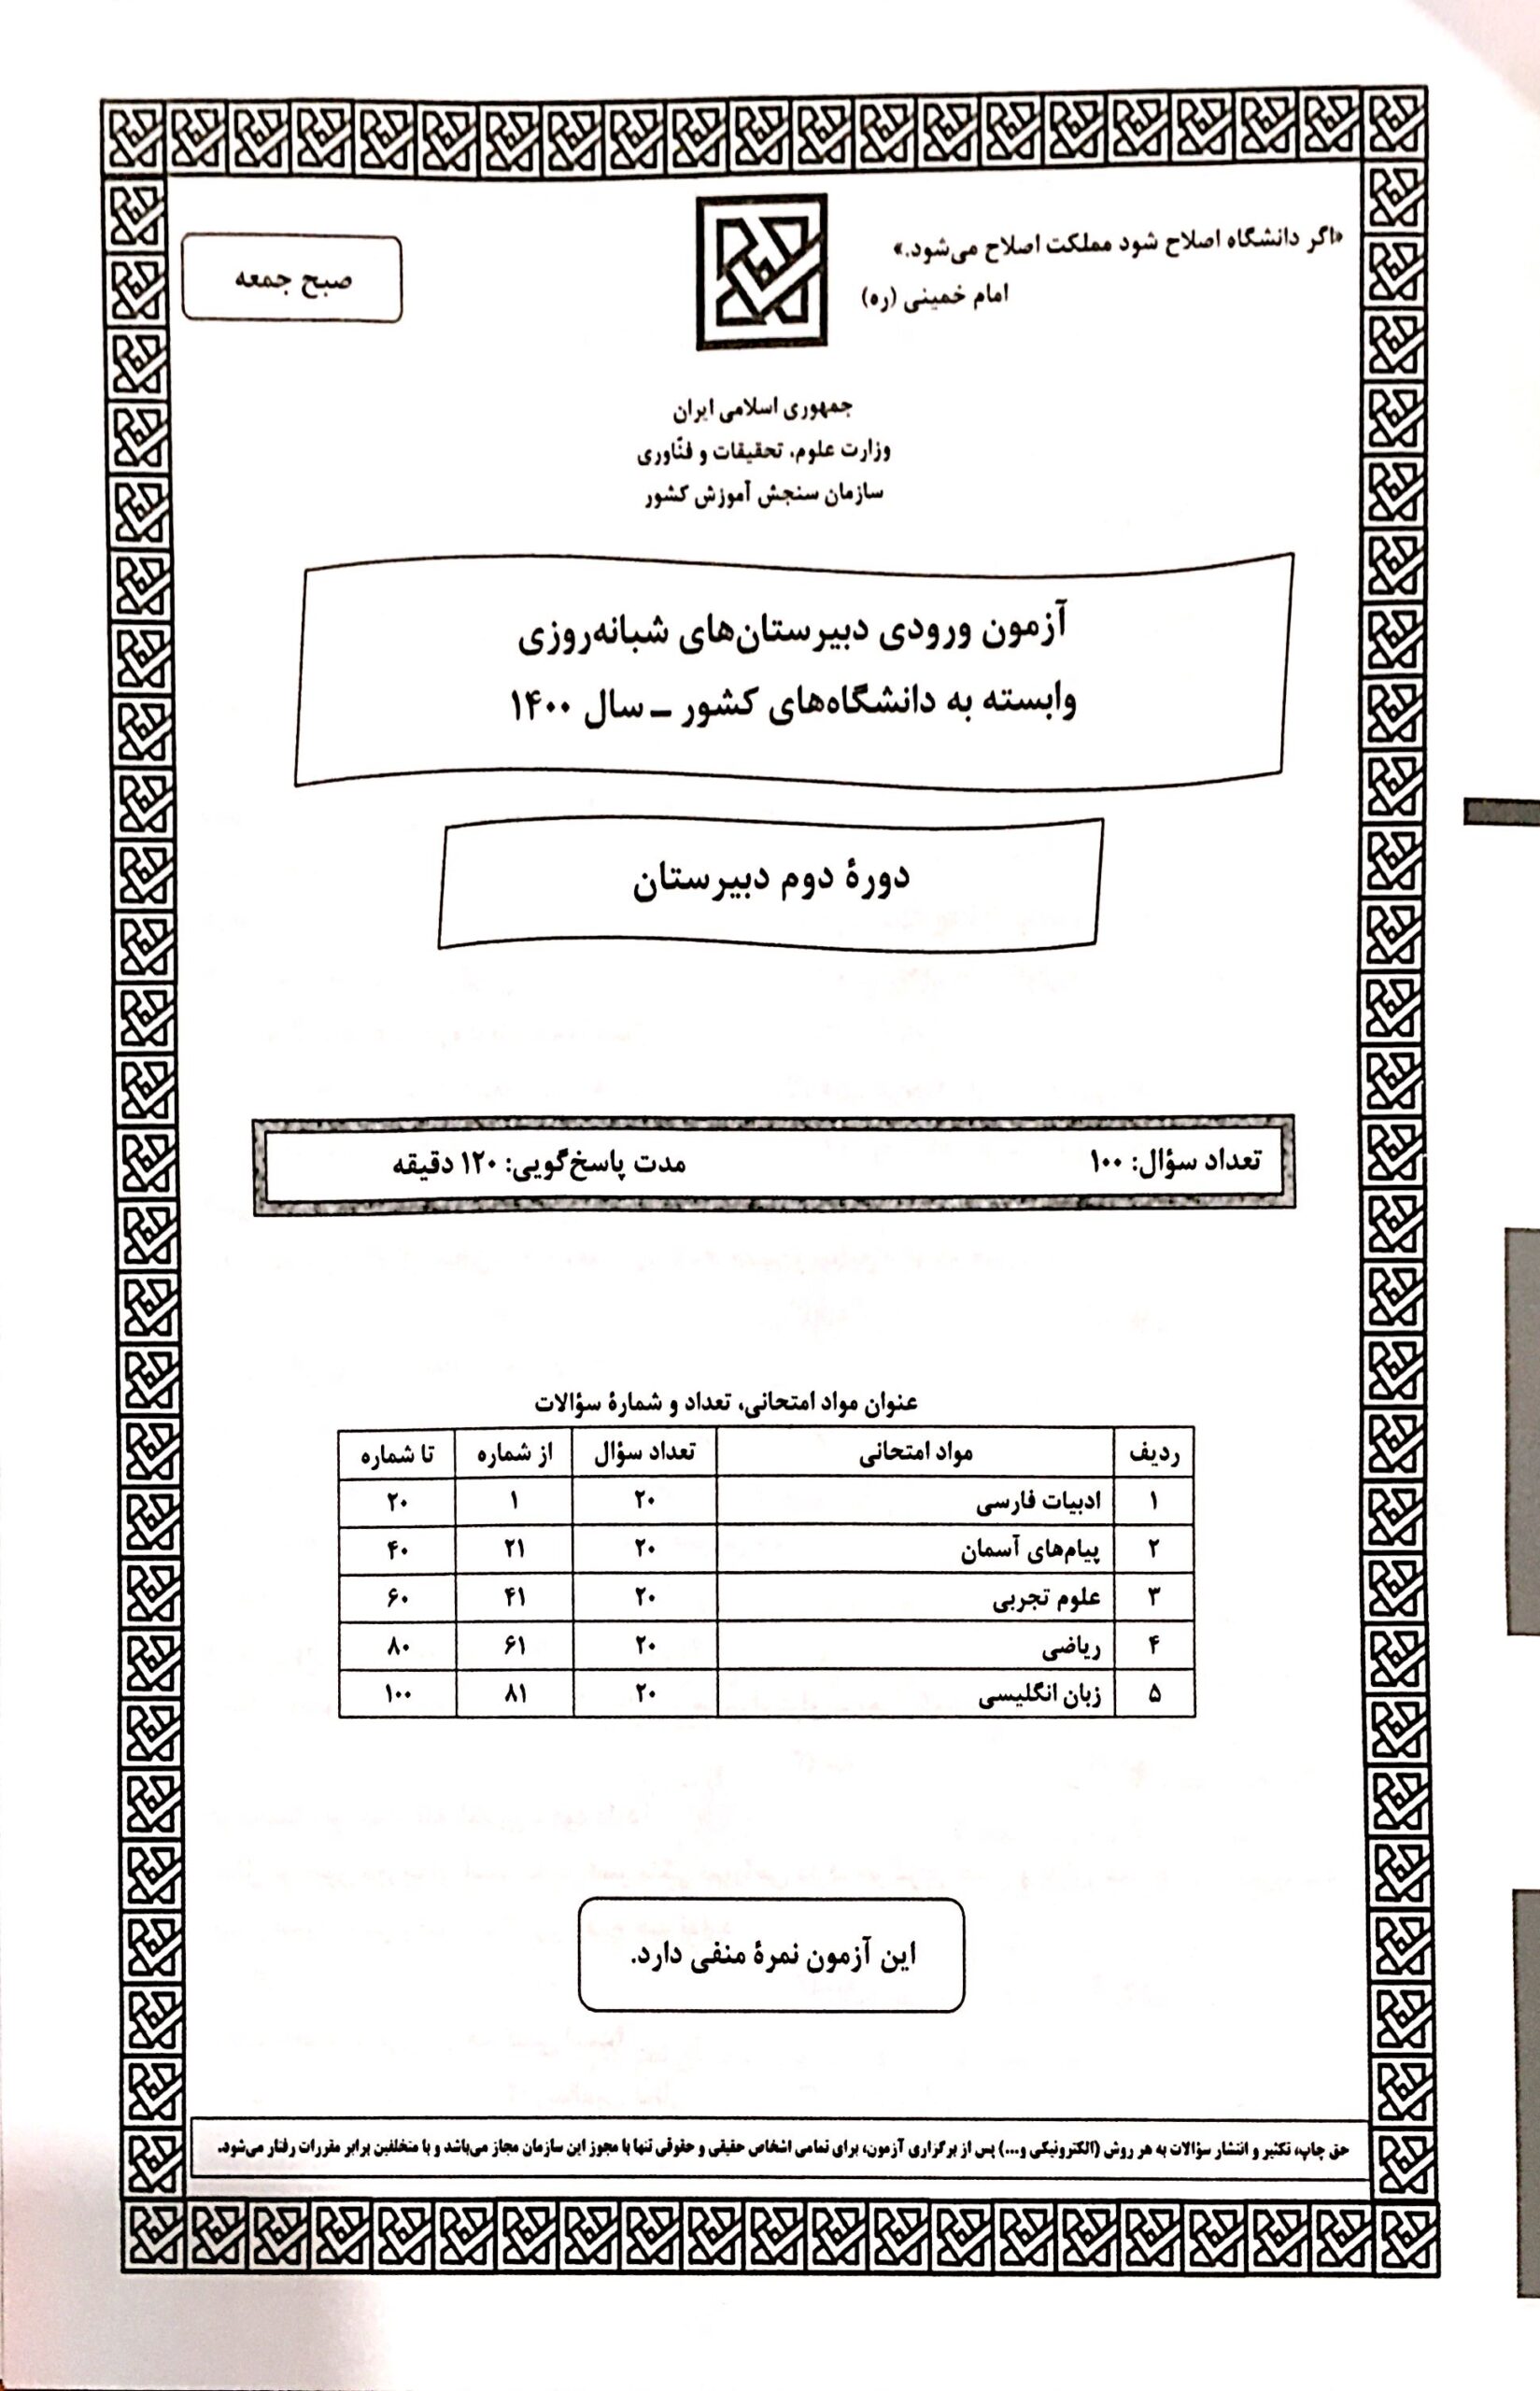 «اگر دانشگاه اصلاح شود مملکت اصلاح می‌شود.»
امام خمینی (ره)
صبح جمعه
جمهوری اسلامی ایران
وزارت علوم، تحقیقات و فنّاوری
سازمان سنجش آموزش کشور
آزمون ورودی دبیرستان‌های شبانه‌روزی
وابسته به دانشگاه‌های کشور ـ سال ۱۴۰۰
دورهٔ دوم دبیرستان
تعداد سؤال: ۱۰۰ مدت پاسخ‌گویی: ۱۲۰ دقیقه
عنوان مواد امتحانی، تعداد و شمارهٔ سؤالات
ردیف مواد امتحانی تعداد سؤال از شماره تا شماره
۱ ادبیات فارسی ۲۰ ۱ ۲۰
۲ پیام‌های آسمان ۲۰ ۲۱ ۴۰
۳ علوم تجربی ۲۰ ۴۱ ۶۰
۴ ریاضی ۲۰ ۶۱ ۸۰
۵ زبان انگلیسی ۲۰ ۸۱ ۱۰۰
این آزمون نمرهٔ منفی دارد.
حق چاپ، تکثیر و انتشار سؤالات به هر روش (الکترونیکی و...) پس از برگزاری آزمون، برای تمامی اشخاص حقیقی و حقوقی تنها با مجوز این سازمان مجاز می‌باشد و با متخلفین برابر مقررات رفتار می‌شود.